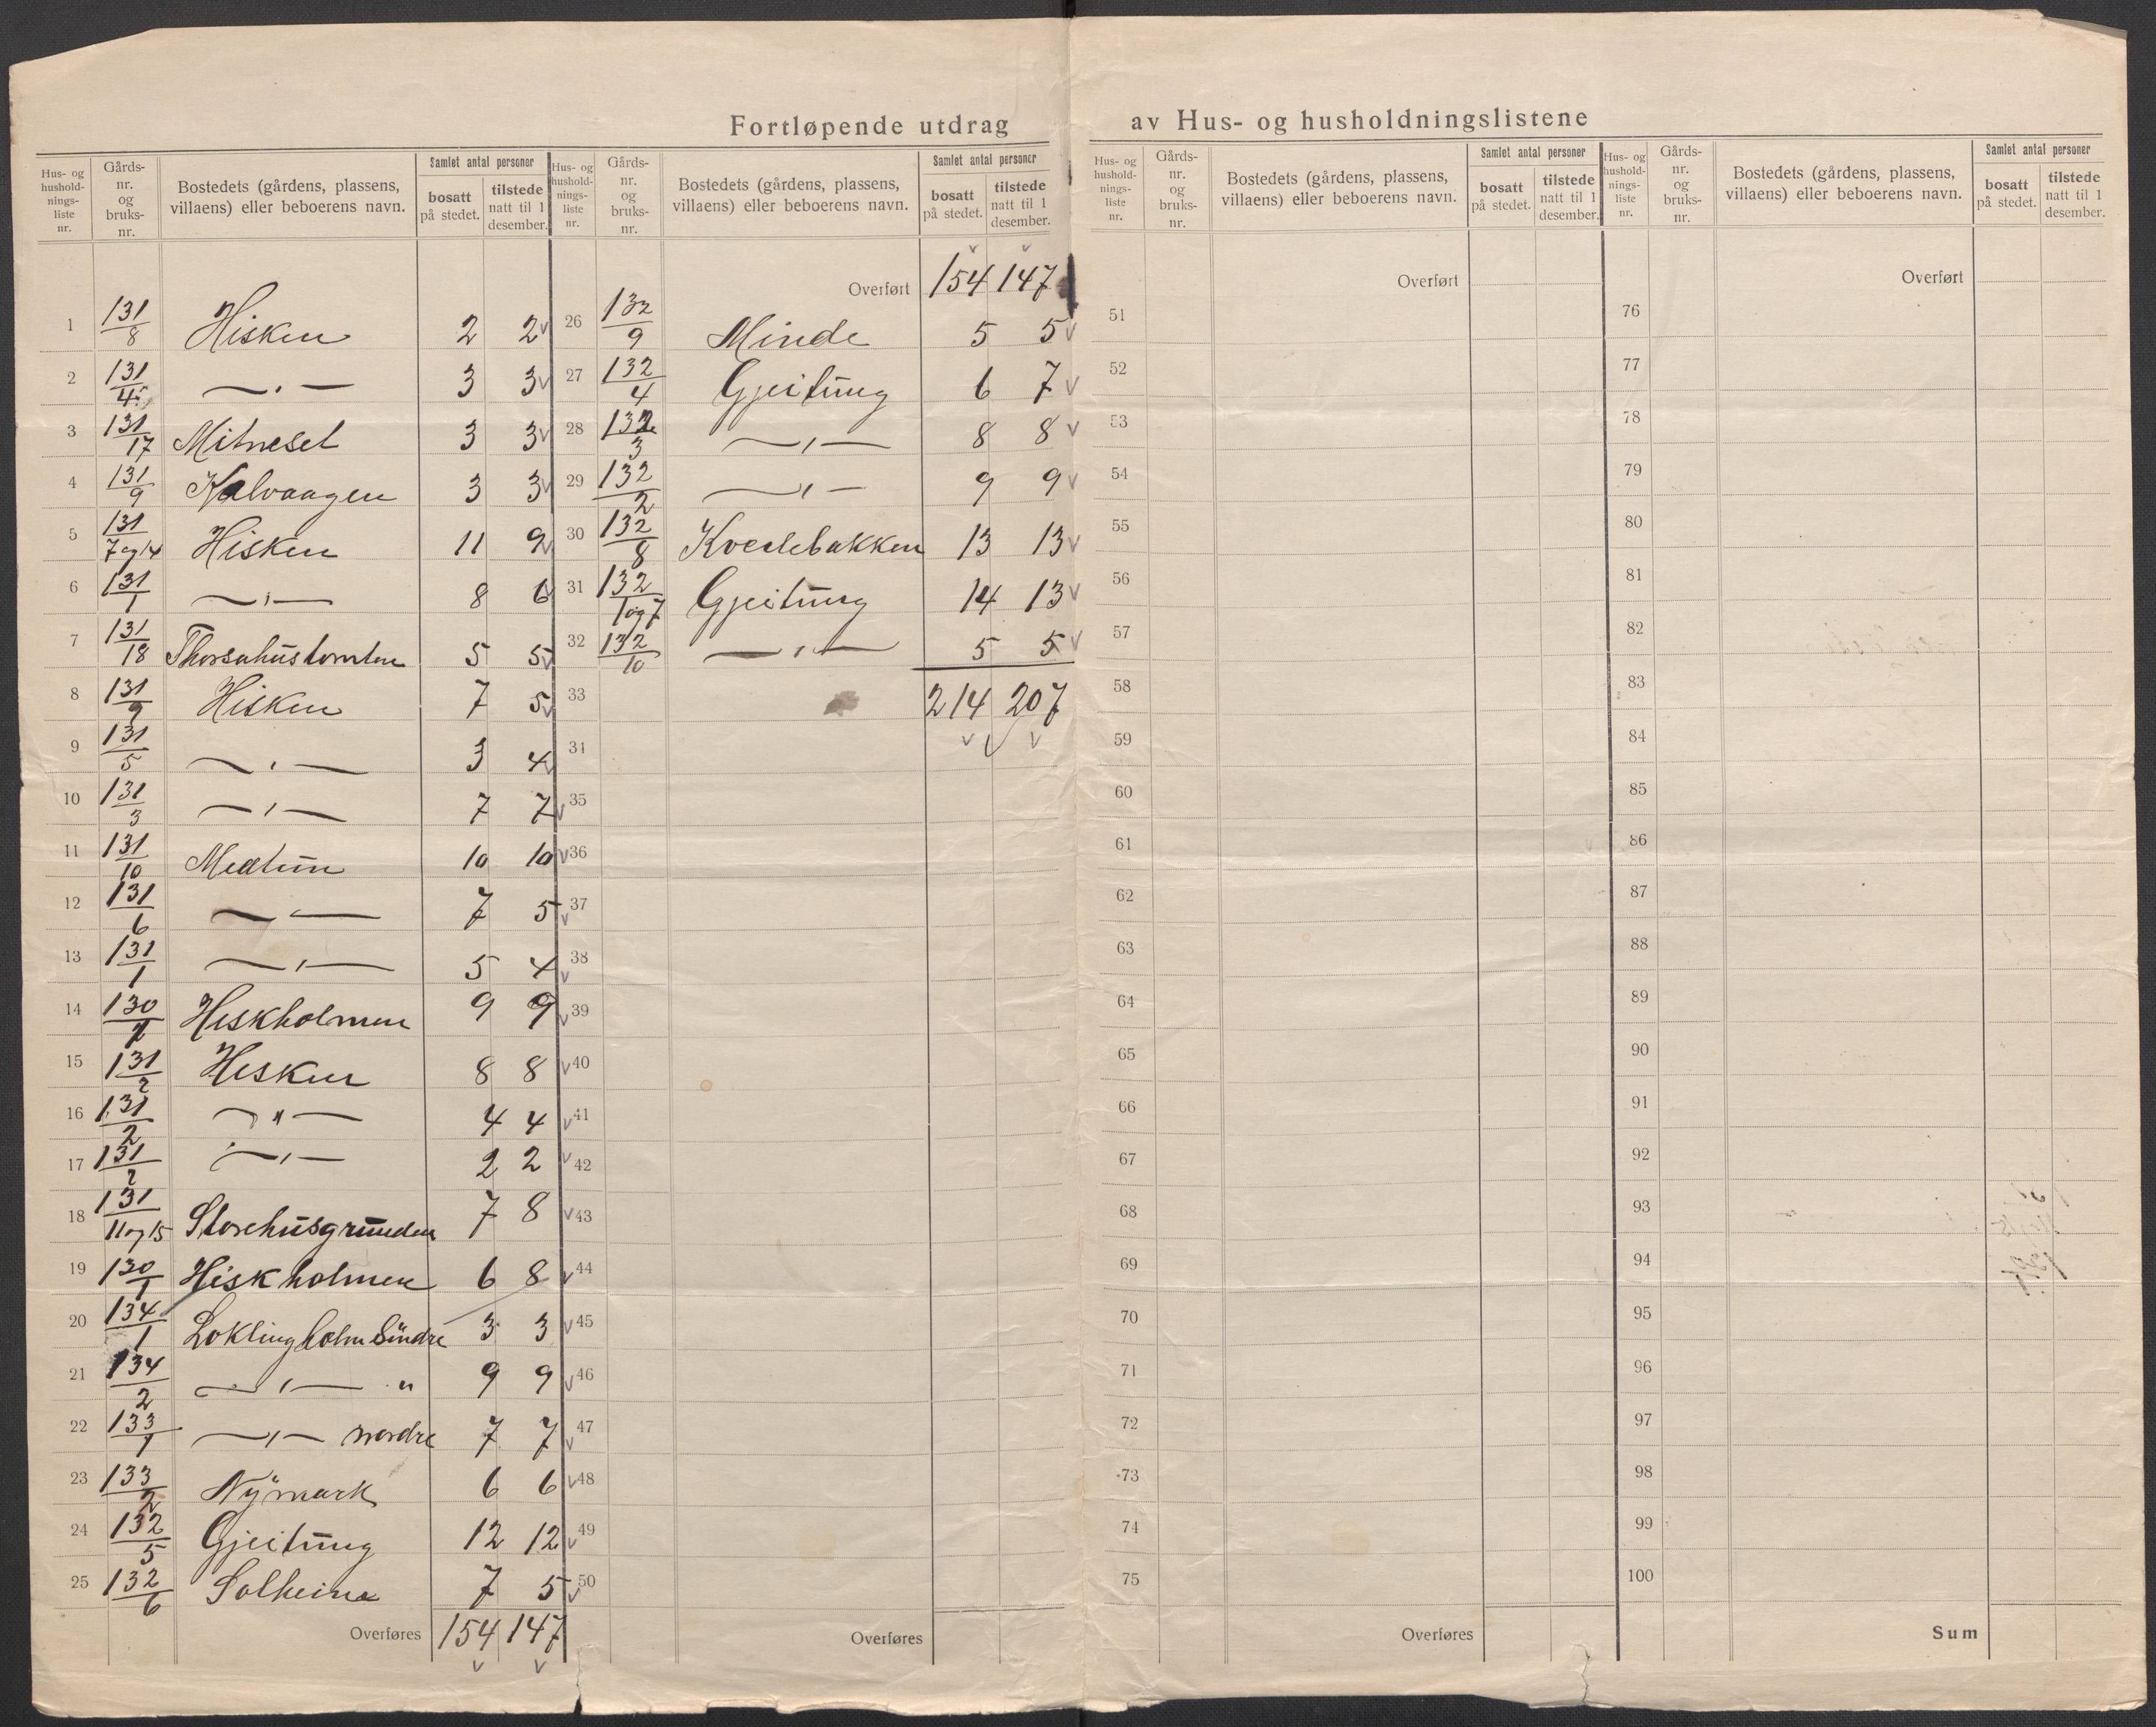 Fortløpende utdrag av Hus- og husholdningslistene
Hus- og hushold-nings-liste nr. | Gårds-nr. og bruks-nr. | Bostedets (gårdens, plassens, villaens) eller beboerens navn. | Samlet antal personer | bosatt på stedet. | tilstede natt til 1 desember.
1 131/8 Hisken 2 2 v
2 131/4 — „ — 3 3 v
3 131/17 Mitneset 3 3 v
4 131/9 Kalvaagen 3 3 v
5 131/7 og 14 Hisken 11 9 v
6 131/1 — „ — 8 6 v
7 131/18 Thorsahustomten 5 5 v
8 131/9 Hisken 7 5 v
9 131/5 — „ — 3 4 v
10 131/3 — „ — 7 7 v
11 131/10 Medtun 10 10 v
12 131/6 — „ — 7 5 v
13 131/1 — „ — 5 4 v
14 130/1 Hiskholmen 9 9 v
15 131/2 Hisken 8 8 v
16 131/2 — „ — 4 4 v
17 131/2 — „ — 2 2 v
18 131/11 og 15 Storehusgrunden 7 8 v
19 130/1 Hiskholmen 6 8 v
20 134/1 Loklingholm Sündre 3 3 v
21 134/2 — „ — „ 9 9 v
22 133/1 — „ — nordre 7 7 v
23 133/2 Nymark 6 6 v
24 132/5 Gjeitung 12 12 v
25 132/6 Solheim 7 5 v
Overføres 154 147
v v
Hus- og hushold-nings-liste nr. | Gårds-nr. og bruks-nr. | Bostedets (gårdens, plassens, villaens) eller beboerens navn. | Samlet antal personer | bosatt på stedet. | tilstede natt til 1 desember.
v v
Overført 154 147
26 132/9 Minde 5 5 v
27 132/4 Gjeitung 6 7 v
28 132/3 — „ — 8 8 v
29 132/2 — „ — 9 9 v
30 132/8 Kvednebakken 13 13 v
31 132/1 og 7 Gjeitung 14 13 v
32 132/10 — „ — 5 5 v
33 214 207
v v v
34
35
36
37
38
39
40
41
42
43
44
45
46
47
48
49
50
Overføres
Hus- og hushold-nings-liste nr. | Gårds-nr. og bruks-nr. | Bostedets (gårdens, plassens, villaens) eller beboerens navn. | Samlet antal personer | bosatt på stedet. | tilstede natt til 1 desember.
Overført
51
52
53
54
55
56
57
58
59
60
61
62
63
64
65
66
67
68
69
70
71
72
73
74
75
Overføres
Hus- og hushold-nings-liste nr. | Gårds-nr. og bruks-nr. | Bostedets (gårdens, plassens, villaens) eller beboerens navn. | Samlet antal personer | bosatt på stedet. | tilstede natt til 1 desember.
Overført
76
77
78
79
80
81
82
83
84
85
86
87
88
89
90
91
92
93
94
95
96
97
98
99
100
Sum